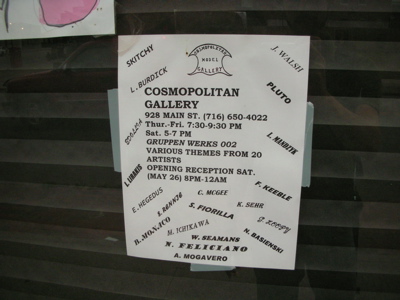 SKITCHY
J. WALSH
COSMOPOLITAN
GALLERY
L. BURDICK
PLUTO
COSMOPOLITAN
GALLERY
928 MAIN ST. (716) 650-4022
Thur.-Fri. 7:30-9:30 PM
Sat. 5-7 PM
GRUPPEN WERKS 002
VARIOUS THEMES FROM 20
ARTISTS
OPENING RECEPTION SAT.
(MAY 26) 8PM-12AM
F. KEEBLE
E. HEGEDUS
C. MCGEE
K. SEHR
S. FIORILLA
B. MONACO
M. ICHIKAWA
N. BASIENSKI
W. SEAMANS
N. FELICIANO
A. MOGAVERO